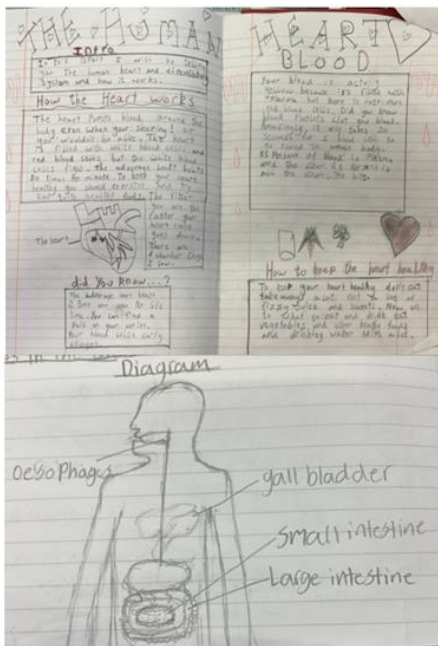 THE HUMAN HEART
Intro
In this report I will be
you The human heart and
system and how it works.
How the Heart works
The heart Pumps blood, around the
body even when your sleeping! or
you wouldn't be alive. The heart
is filled with white blood cells and
red blood cells but the white blood
cells fight. The average heart beats
80 times Per minute. To keep your heart
healthy you should exercise and try
eat healthy foods.
The fitter
you are the
faster your
heart rate
goes down.
There are
4 chambers
The heart
did you Know...?
The average heart beats
2 Billion
time. You can find a
Pulse in your
Your blood cells carry
oxygen.
BLOOD
Your blood is
yellow because its filled with
Plasma but there is
red blood cells. Did you know
blood Platelets clot you blood.
Amazingly, it only takes 30
Seconds for a blood cell to
go round
55 Percent of blood is Plasma
and the other 45 Percent is
How to keep the heart healthy
To keep your heart healthy don't eat
takeaways a lot not to
fizzy drink and sweets. Now on
to what to eat and drink eat
vegetables and
and drinking water
Diagram
oesophages
gall bladder
Small intestine
Large intestine